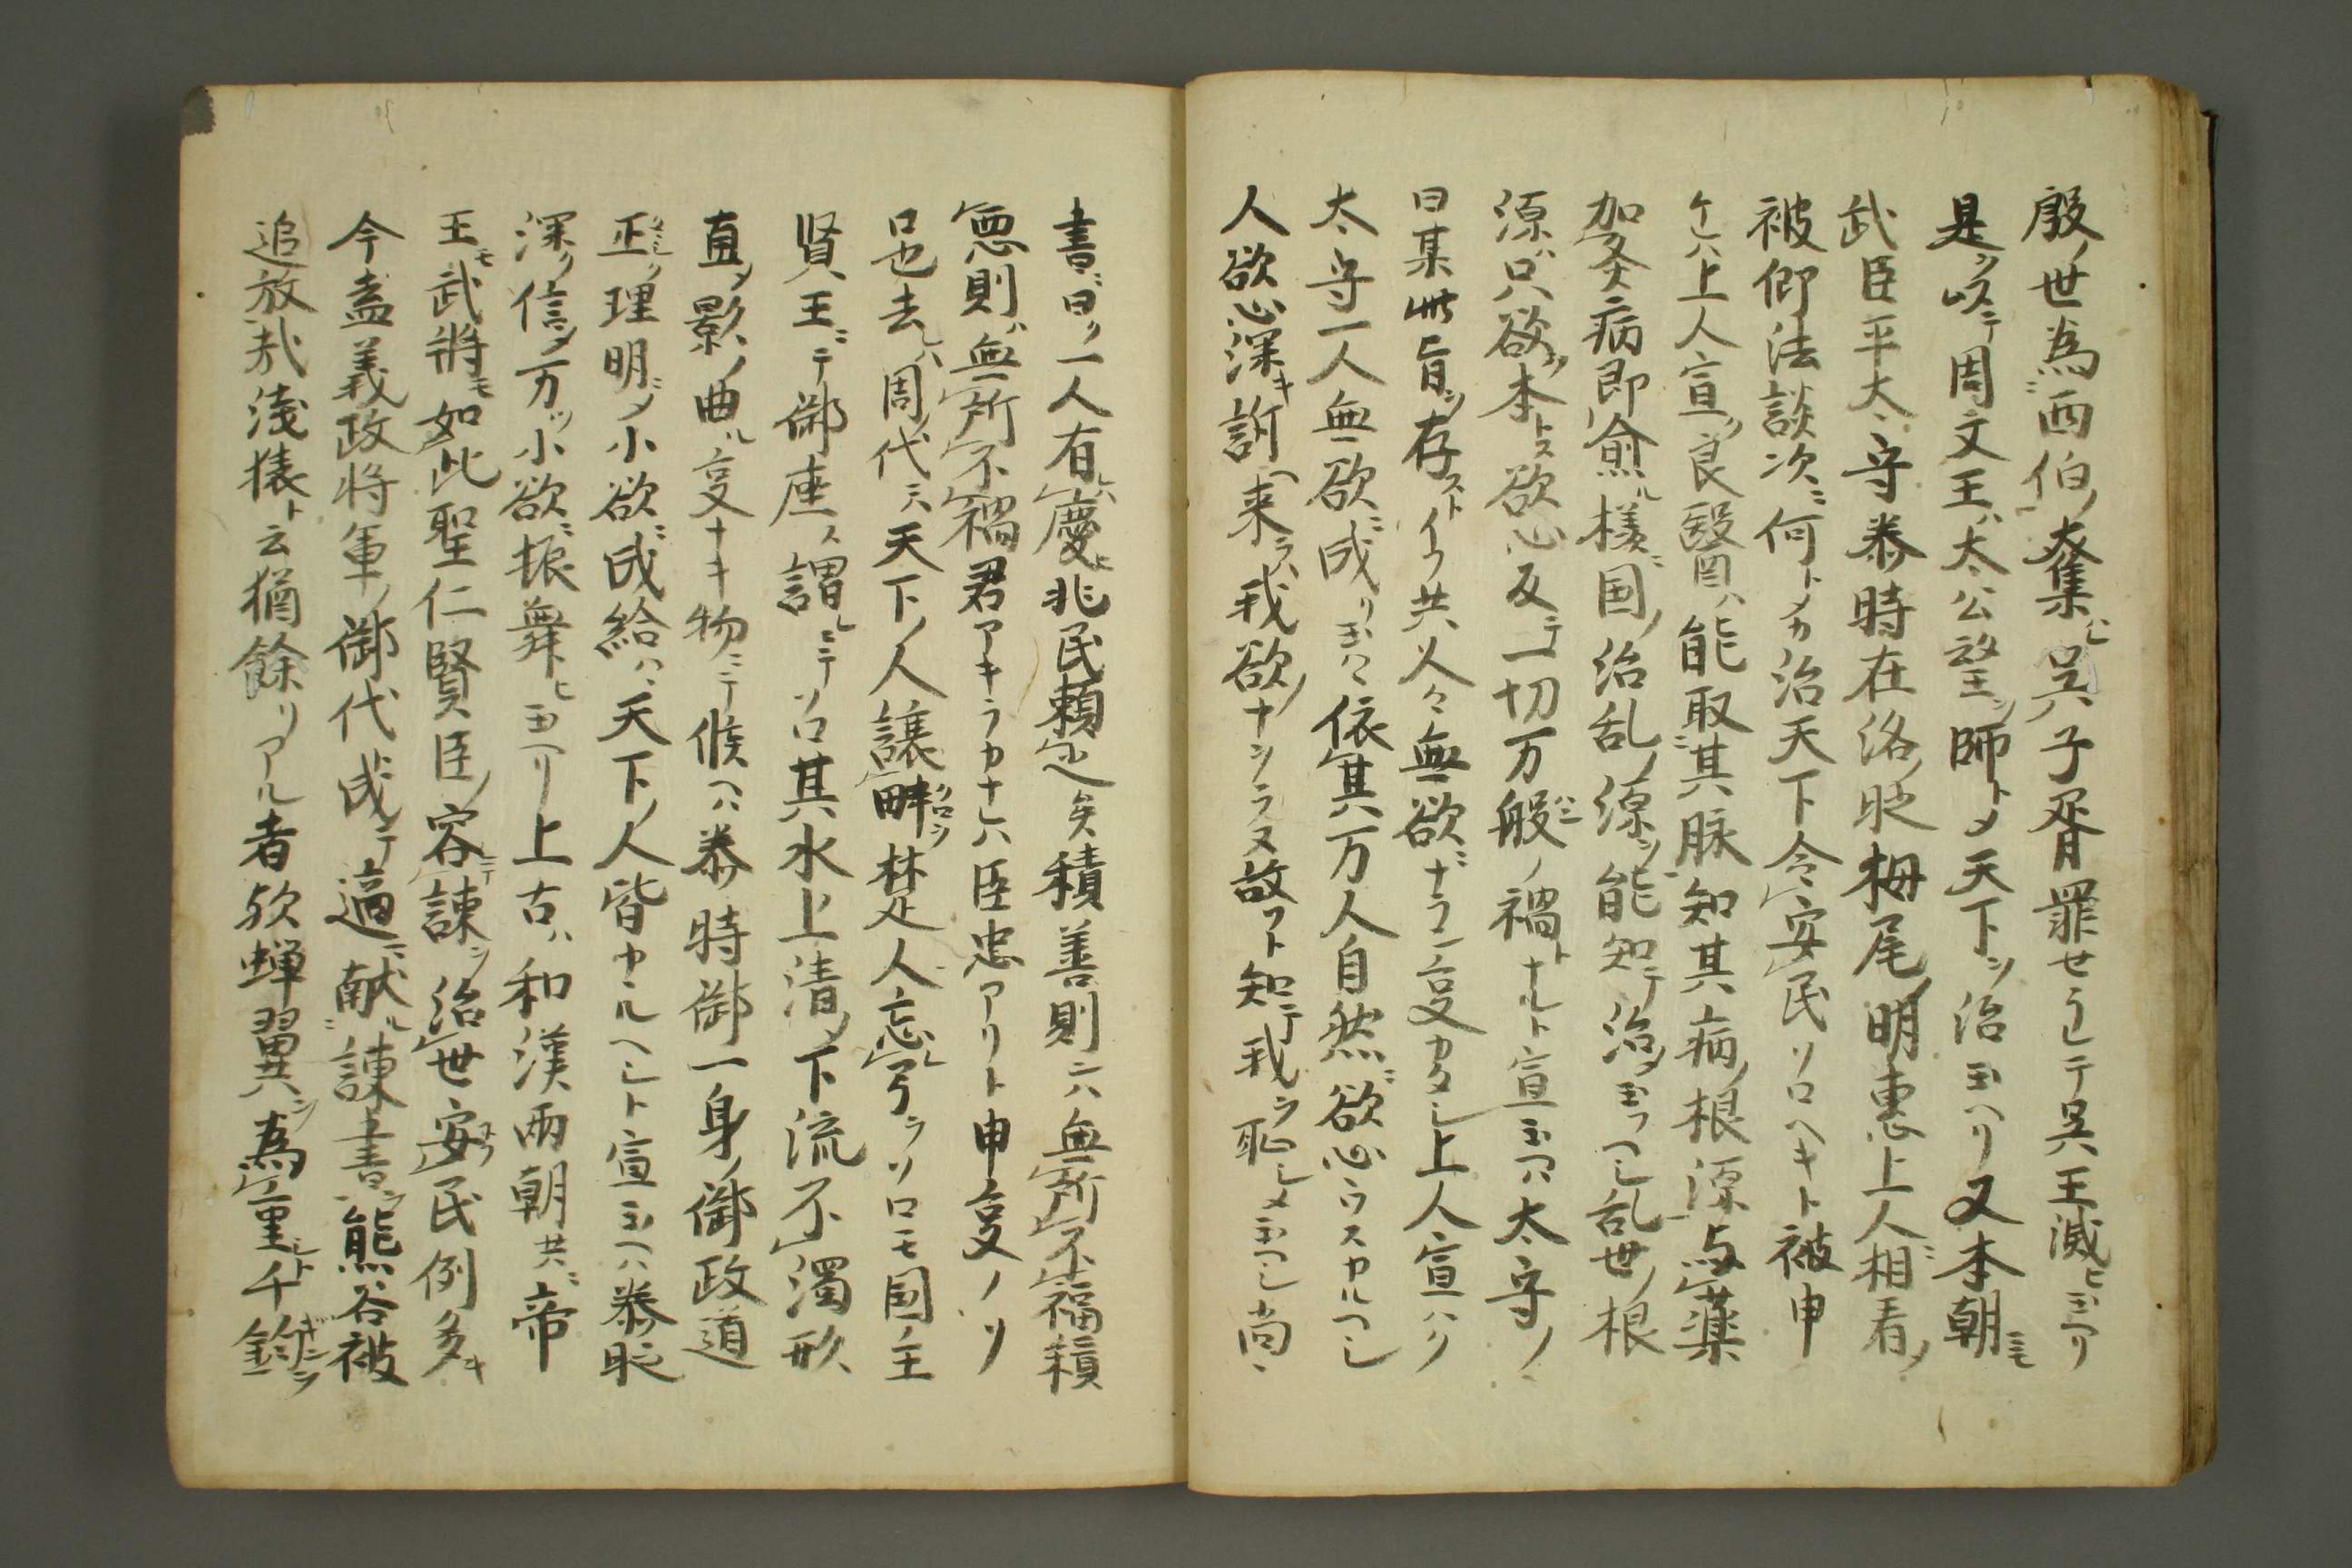 殷ノ世為西伯ノ奪ヒ呉ハ子胥罪せラレテ呉王滅ヒ玉ヘリ
是ヲ以テ周文王ハ太公望ヲ師トメ天下ヲ治玉ヘリ又本朝ニモ
武臣平太守泰時在洛ノ時栂尾ノ明恵上人ニ相看ノ
被仰法談次ニ何トメカ治天下令安民ソロヘキト被申
ケレハ上人宣ク良醫ハ能取其脉知其病ノ根源与薬
加灸病即愈ル様ニ国ノ治乱ノ源ヲ能知テ治メ玉フヘシ乱世ノ根
源ハ只欲ヲ本トス欲心反テ一切万般ノ禍トナルト宣玉ヘハ太守ノ
曰某此旨ヲ存ストイフ共人々無欲ナラン亊カタシ上人宣ハク
太守一人無欲ニ成リ玉ハヽ依其万人自然ニ欲心ウスカルヘシ
人欲心深キ訴ヘ来ラハ我欲ノナヲラヌ故ト知テ我ヲ恥シメ玉ヘシ尚ヽ
書ニ曰ク一人有レハ慶兆民頼之矣積善則ンハ無所不福積
悪則ハ無所不禍君アキラカナレハ臣忠アリト申亊ノソ
ロ也去レハ周ノ代ニハ天下ノ人譲畔ヲクロヲ楚人ハ忘レ弓ヲソロモ国ノ主
賢王ニテ御座ス謂レニテソロ其水上清メ下流不濁形
直メ影ノ曲ル亊ナキ物ニテ候ヘハ泰時御一身ノ御政道
正シク理明ニメ小欲ニ成給ハヽ天下ノ人皆カルヘシト宣玉ヘハ泰時
深ク信メ万ツ小欲ニ振舞ヒ玉ヘリ上古ハ和漢両朝共ニ帝
王モ武將モ如此聖仁賢臣ノ容テ諫ヲ治世ヲ安民例多キ
今盍義政将軍ノ御代ニ成テ適献ル諫書ヲ熊谷被
追放哉浅猿ト云猶餘リアル者欤蝉翼ヲ為重シト千鈞